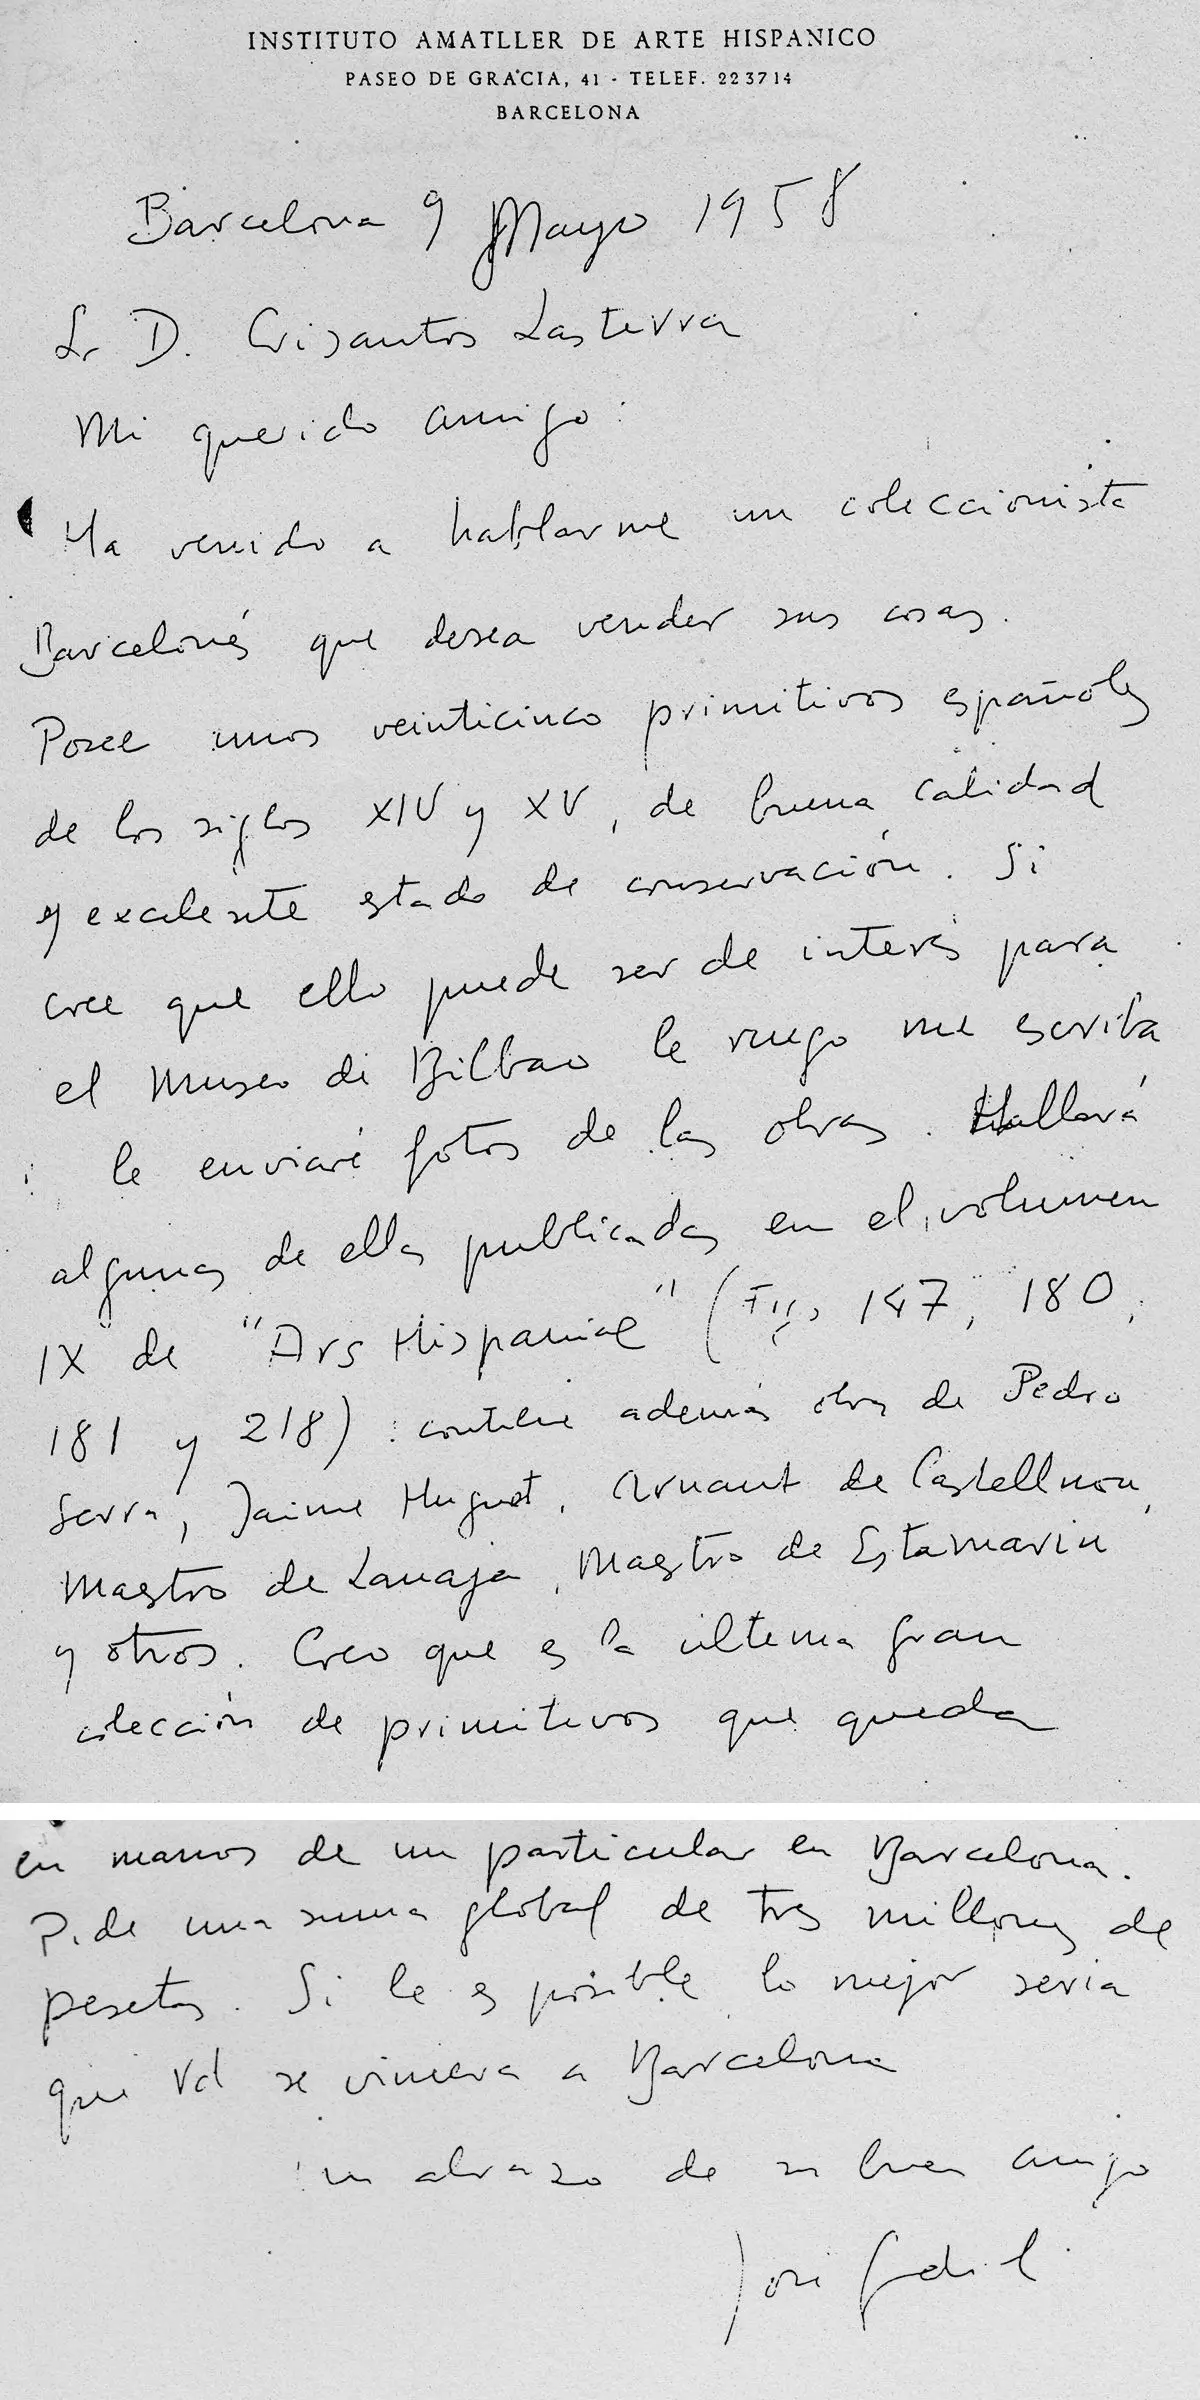 INSTITUTO AMATLLER DE ARTE HISPANICO
PASEO DE GRACIA, 41 - TELEF. 223714
BARCELONA
Barcelona 9 Mayo 1958
Sr D. Crisantos Lasterra
Mi querido amigo:
Ha venido a hablarme un coleccionista
Barcelonés que desea vender sus cosas.
Posee unos veinticinco primitivos españoles
de los siglos XIV y XV, de buena calidad
y excelente estado de conservación. Si
cree que ello puede ser de interés para
el Museo de Bilbao le ruego me escriba
le enviaré fotos de las obras. Hallará
algunas de ellas publicadas en el volumen
IX de "Ars Hispaniae" (Figs 147, 180,
181 y 218) contiene además obras de Pedro
Serra, Jaime Huguet, Arnaut de Castellnou,
Maestro de Lanaja, Maestro de Estamariu
y otros. Creo que es la última gran
colección de primitivos que queda
en manos de un particular en Barcelona.
Pide una suma global de tres millones de
pesetas. Si le es posible lo mejor seria
que Vd se viniera a Barcelona
un abrazo de su buen amigo
José Gudiol